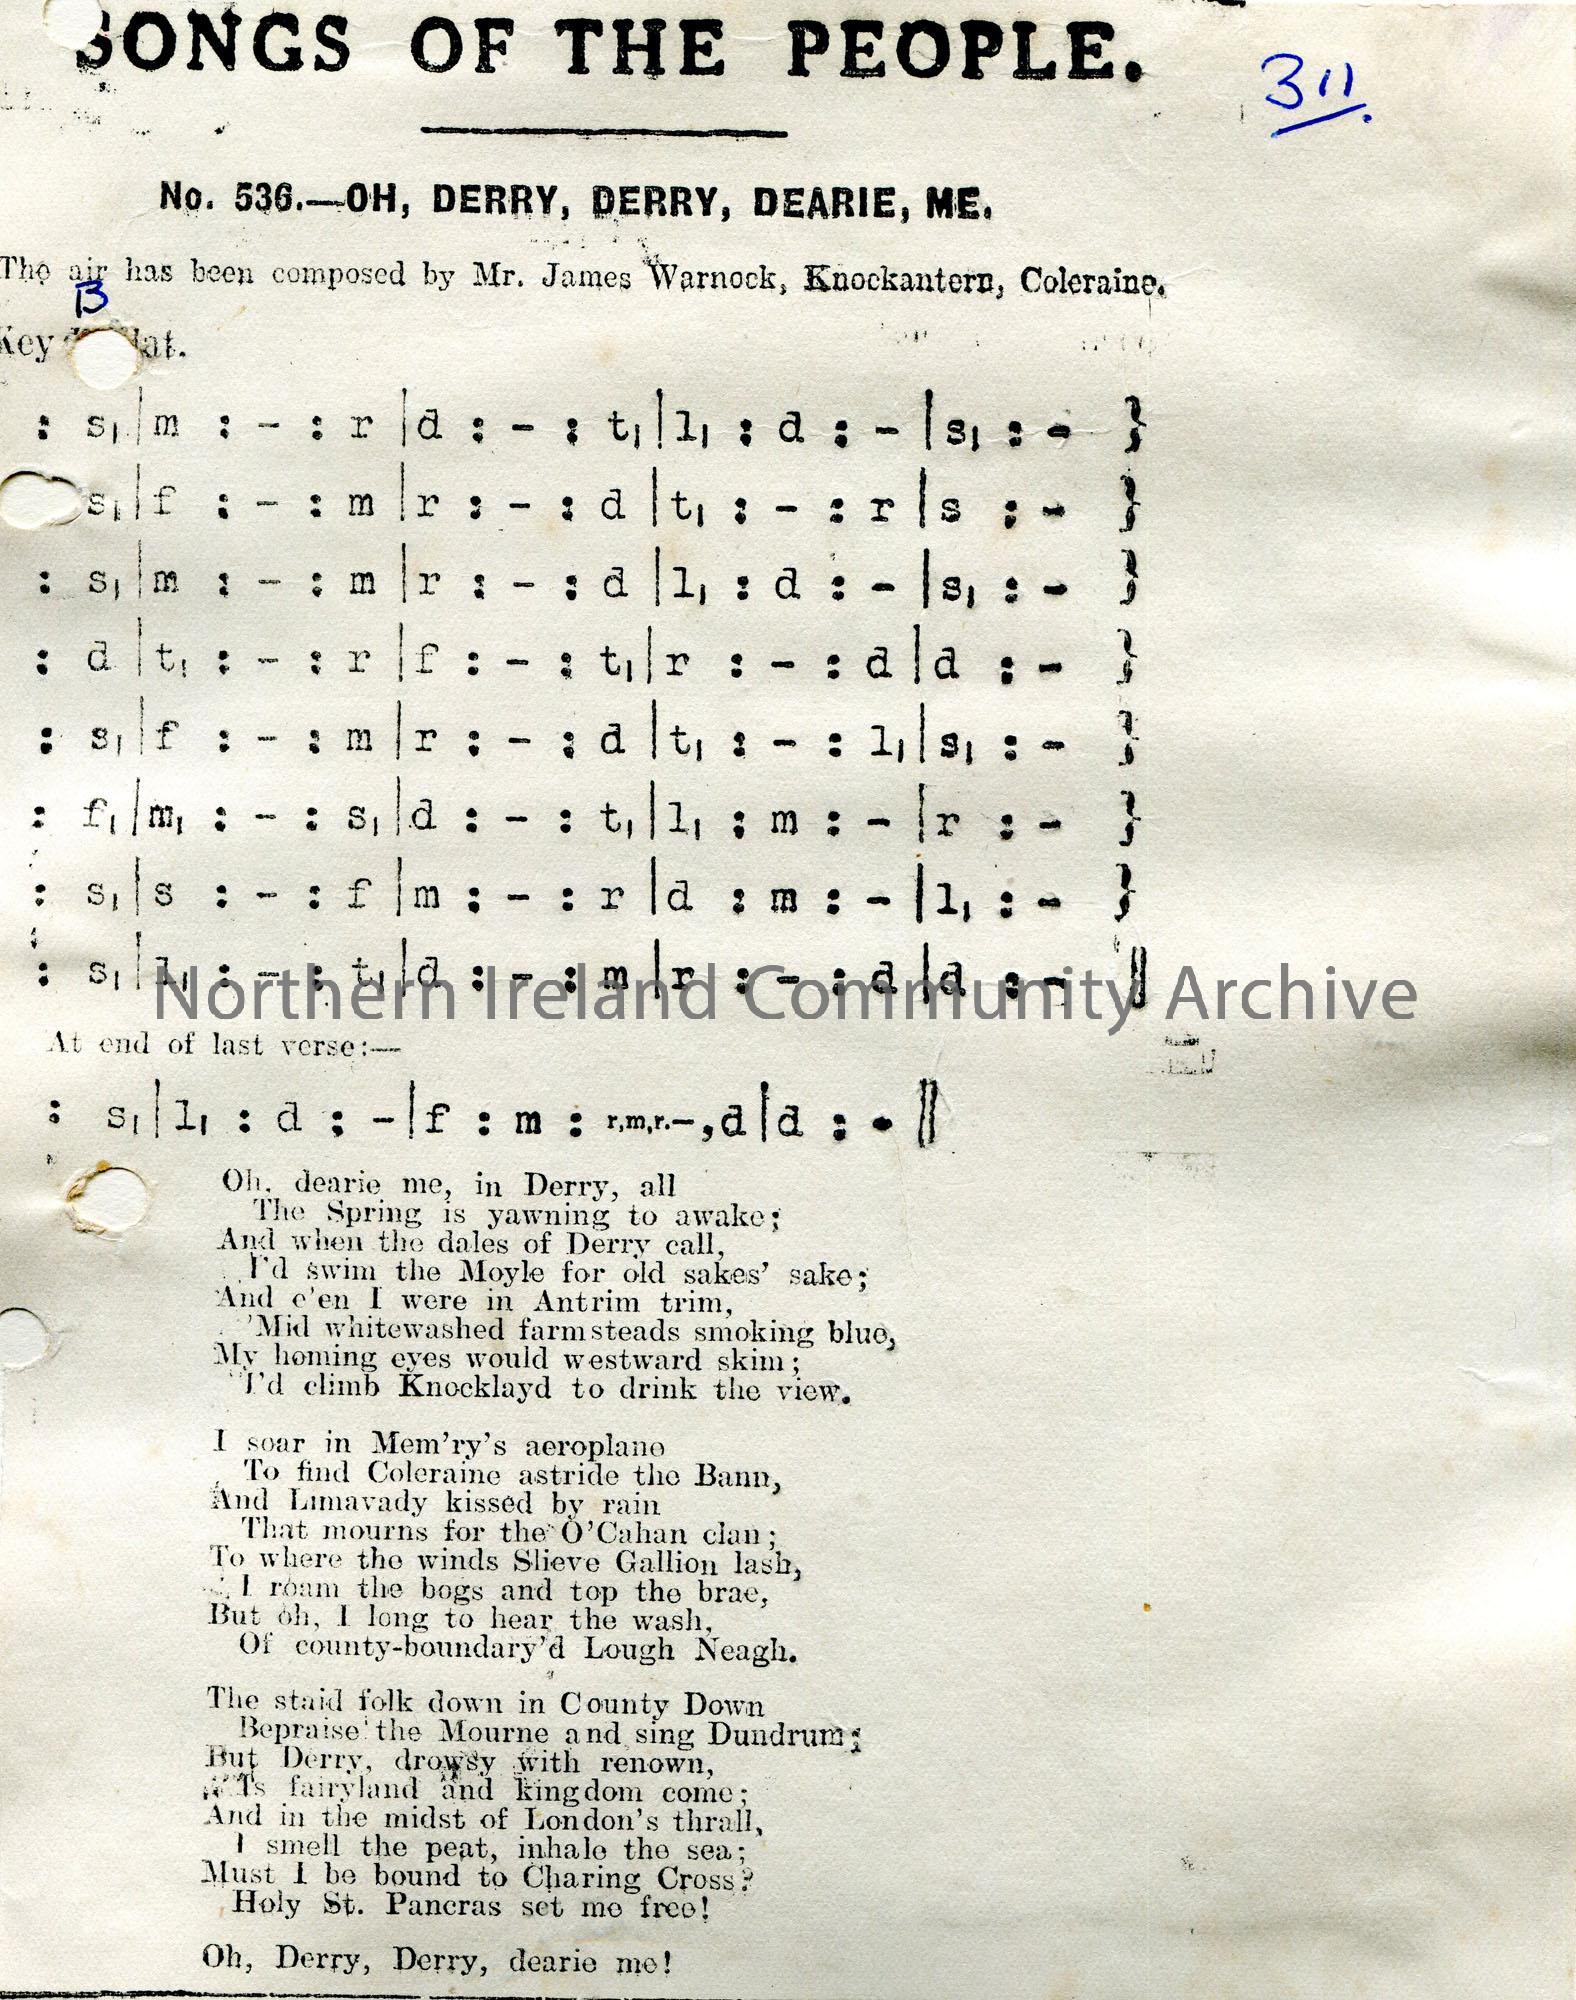 SONGS OF THE PEOPLE.
311.
No. 536.—OH, DERRY, DERRY, DEARIE, ME.
The air has been composed by Mr. James Warnock, Knockantern, Coleraine.
B
Key flat.
: s₁|m : - : r|d : - : t₁|l₁ : d : -|s₁ : - }
s₁|f : - : m|r : - : d|t₁ : - : r|s : - }
: s₁|m : - : m|r : - : d|l₁ : d : -|s₁ : - }
: d|t₁ : - : r|f : - : t₁|r : - : d|d : - }
: s₁|f : - : m|r : - : d|t₁ : - : l₁|s₁ : - }
: f₁|m₁ : - : s₁|d : - : t₁|l₁ : m : -|r : - }
: s₁|s : - : f|m : - : r|d : m : -|l₁ : - }
: s₁|l₁ : - : t₁|d : - : m|r : - : d|d : - ||
Northern Ireland Community Archive
At end of last verse:—
: s₁|l₁ : d : -|f : m : r,m,r.-,d|d : - ||
Oh, dearie me, in Derry, all
The Spring is yawning to awake;
And when the dales of Derry call,
I'd swim the Moyle for old sakes' sake;
And e'en I were in Antrim trim,
'Mid whitewashed farmsteads smoking blue,
My homing eyes would westward skim;
I'd climb Knocklayd to drink the view.
I soar in Mem'ry's aeroplane
To find Coleraine astride the Bann,
And Limavady kissed by rain
That mourns for the O'Cahan clan;
To where the winds Slieve Gallion lash,
I roam the bogs and top the brae,
But oh, I long to hear the wash,
Of county-boundary'd Lough Neagh.
The staid folk down in County Down
Bepraise the Mourne and sing Dundrum;
But Derry, drowsy with renown,
Is fairyland and kingdom come;
And in the midst of London's thrall,
I smell the peat, inhale the sea;
Must I be bound to Charing Cross?
Holy St. Pancras set me free!
Oh, Derry, Derry, dearie me!